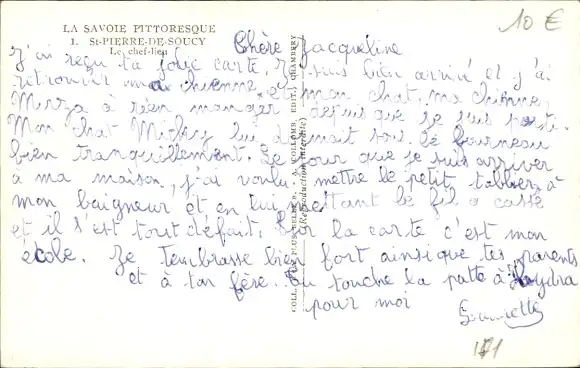 LA SAVOIE PITTORESQUE
1. St-PIERRE-DE-SOUCY
Le chef-lieu
10 €
Chère Jacqueline
J'ai reçu ta jolie carte. Je suis bien arrivé et j'ai
retrouvér ma chienne et mon chat, ma chienne
Mirza à rien manger depuis que je suis parti.
Mon chat Mickey lui dormait sous le fourneau
bien tranquillement. Le jour que je suis arriver
à ma maison, j'ai voulu mettre le petit tablier à
mon baigneur et en lui mettant le fil a cassé
et il s'est tout défait. Sur la carte c'est mon
école. Je tembrasse bien fort ainsique tes parents
et à ton fère. Tu touche la patte à
pour moi
COLL. A. VOLLOMB, EDIT., CHAMBERY
(Reproduction interdite)
171